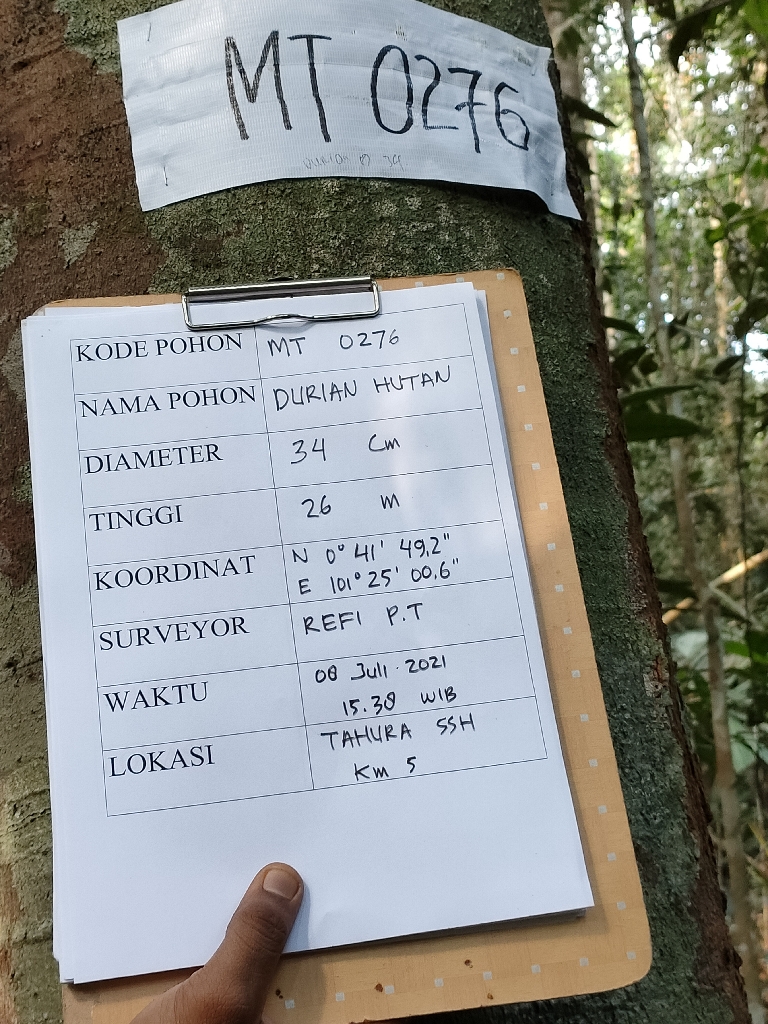 MT 0276
DURIAN Ø 34
KODE POHON MT 0276
NAMA POHON DURIAN HUTAN
DIAMETER 34 Cm
TINGGI 26 m
KOORDINAT N 0° 41' 49,2"
E 101° 25' 00,6"
SURVEYOR REFI P.T
WAKTU 08 Juli 2021
15.38 WIB
LOKASI TAHURA SSH
Km 5